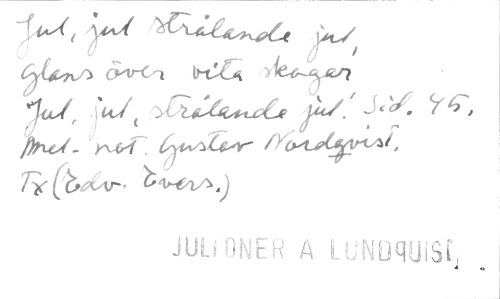 Jul, jul strålande jul,
glans över vita skogar
Jul, jul, strålande jul! Sid. 45.
Mel- not. Gustav Nordqvist.
Tx (Edv. Evers.)
JULTONER A LUNDQUIST.